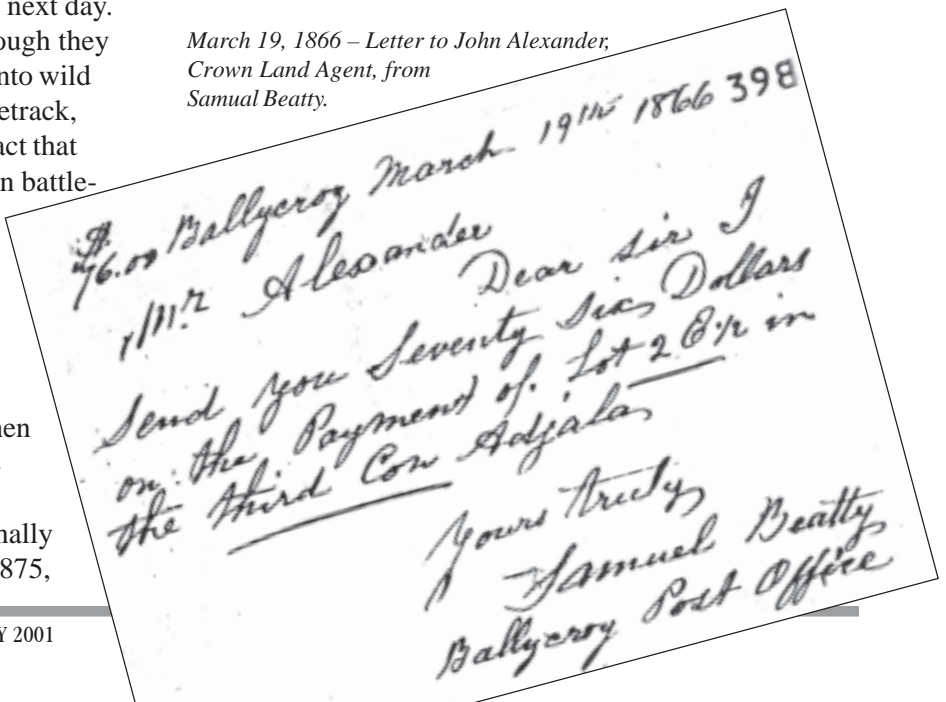 next day.
ough they
nto wild
etrack,
act that
n battle-
hen
nally
875,
Y 2001
March 19, 1866 – Letter to John Alexander,
Crown Land Agent, from
Samual Beatty.
$76.00 Ballycroy March 19th 1866 398
Mr. Alexander
Dear Sir I
Send you Seventy Six Dollars
on the Payment of Lot 2 E½ in
the third Con Adjala
Yours truly
Samuel Beatty
Ballycroy Post Office